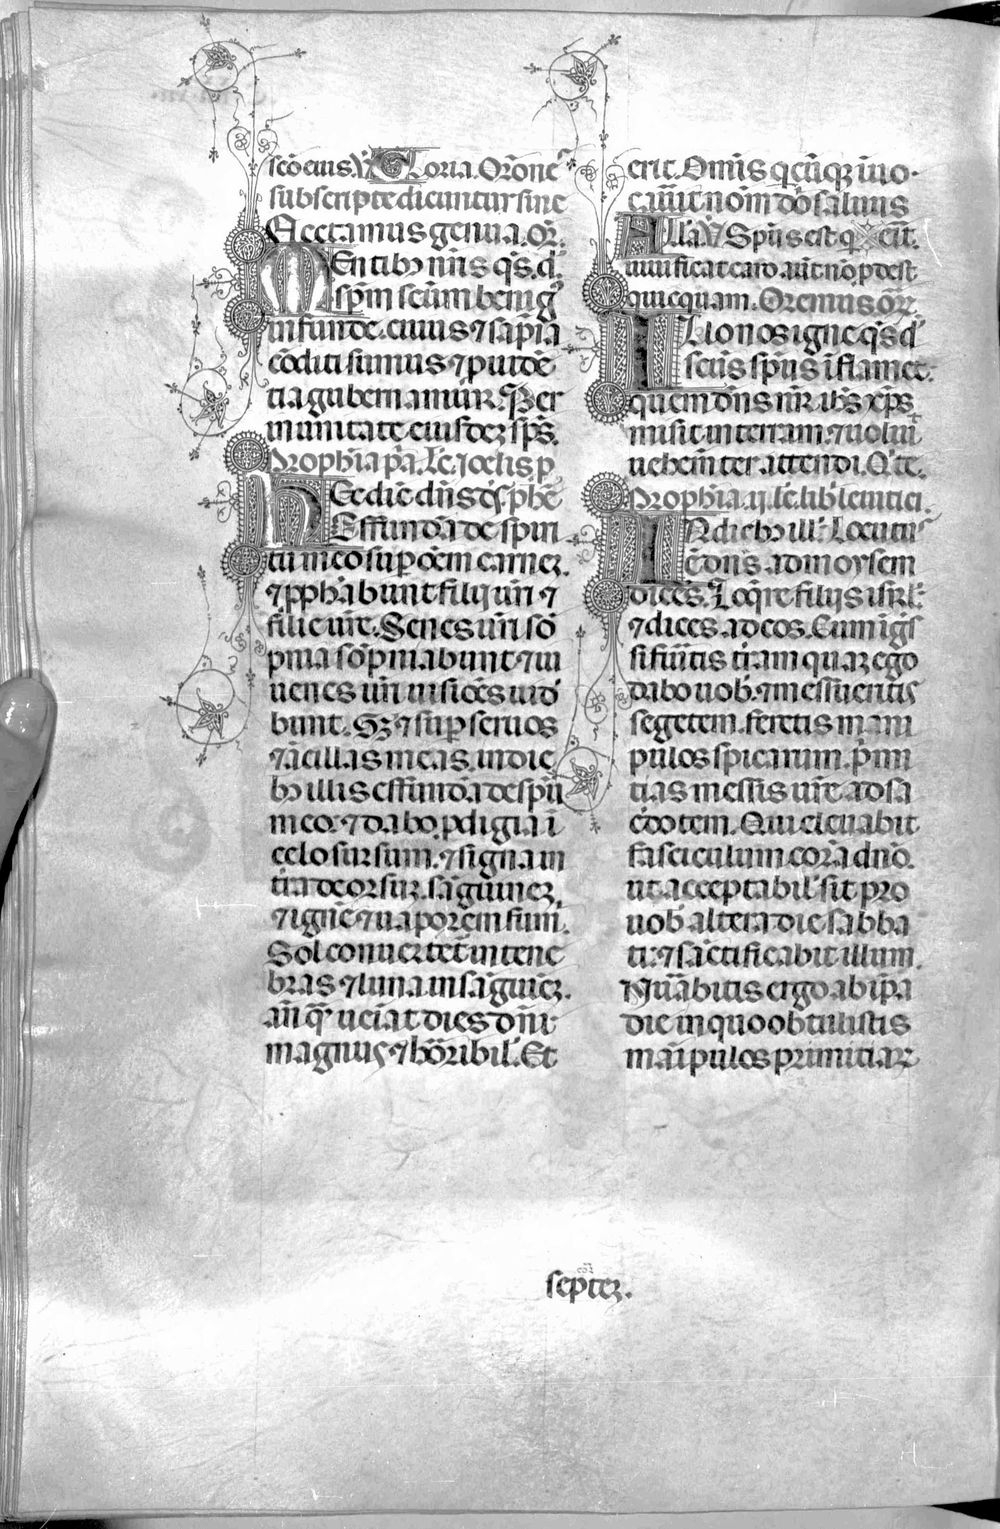 scō eius. V̄ Gloria. Orōnes
subscripte dicuntur sine
Flectamus genua. Or̄.
MEntibꝫ nr̄is q̄s. d.
sp̄m sc̄um benignꝰ
infunde. cuius ⁊ sapīa
cōditi sumus ⁊ prudē
tia gubernamur. Per
in unitate eiusdeꝫ sp̄s.
Prophīa pa. Lc̄. ioelis p̄
HEc dic̄ dn̄s ds̄. phē
Effundā de spiri
tu meo sup oēm carneꝫ.
⁊ pphabunt filij ur̄i ⁊
filie ur̄e. Senes ur̄i sō
pnia sōpniabunt ⁊ iu
uenes ur̄i uisiōes uidꝰ
bunt. Sꝫ ⁊ sup seruos
⁊ ācillas meas. in die
bꝫ illis effundā de spū
meo. ⁊ dabo pdigia ī
celo sursum. ⁊ signa in
tr̄a deorsuꝫ. sāguineꝫ.
⁊ ignē ⁊ uaporem fumi.
Sol conuertet̄ in tene
bras ⁊ luna in sāguīeꝫ.
an̄ qꝫ ueīat dies dn̄i
magnus ⁊ hōribil'. Et
erit. Omīs qcūqꝫ iuo
cauit nōm dn̄i saluus
ALla V̄ Spūs est q
uiuificat caro aūt nō pdest
quicquam. Oremus or̄.
ILlo nos igne q̄s d'
sc̄us spūs īflamet.
quem dn̄s nr̄ ihs xp̄s
misit in terram. ⁊ uoluit
uehemēter accendi. Q. te.
Prophīa .ij. lc̄. lib' leuitici.
IN diebꝫ ill'. Locutus
ē dn̄s ad moysem
dicēs. Loq̄re filijs isrl'.
⁊ dices ad eos. Cum īgs
si fuītis tr̄am quaꝫ ego
dabo uob'. ⁊ messueritis
segetem. feretis mani
pulos spicarum. pmi
tias messis ur̄e ad sa
c̄dotem. Qui eleuabit
fasciculum corā dn̄o.
ut acceptabil' sit pro
uob' altera die sabba
ti. ⁊ sāctificabit illum.
Nūabitis ergo ab ip̄a
die in quo obtulistis
maīpulos primitiaꝝ
septeꝫ.